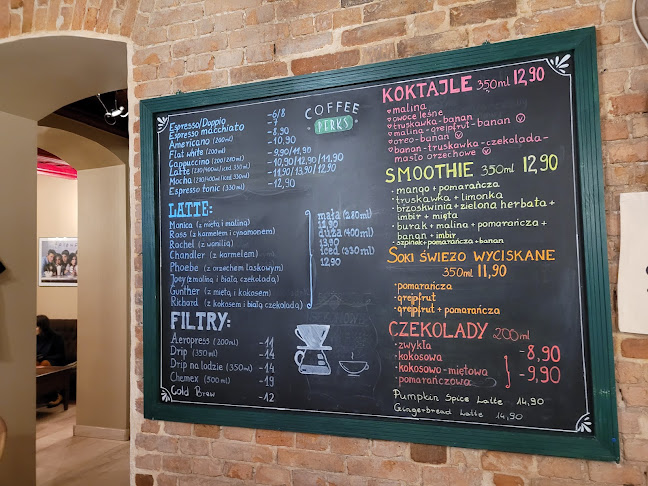 COFFEE
PERKS
Espresso/Doppio -6/8
Espresso macchiato -7
Americano (200ml) -8,90
Flat white (200ml) -10,90
Cappuccino (200/280ml) -9,90/11,90
Latte (280/400ml/iced 330ml) -10,90/12,90/11,90
Mocha (280/400ml/iced 330ml) -11,90/13,90/12,90
Espresso tonic (330ml) -12,90
LATTE:
Monica (z miętą i maliną)
Ross (z karmelem i cynamonem)
Rachel (z wanilią)
Chandler (z karmelem)
Phoebe (z orzechem laskowym)
Joey (z maliną i białą czekoladą)
Gunther (z miętą i kokosem)
Richard (z kokosem i białą czekoladą)
mała (280ml)
12,90
duża (400ml)
13,90
iced (330ml)
12,90
FILTRY:
Aeropress (200ml) -11
Drip (350ml) -14
Drip na lodzie (350ml) -14
Chemex (500ml) -19
Cold Brew -12
KOKTAJLE 350ml 12,90
malina
owoce leśne
truskawka-banan
malina-grejpfrut-banan
oreo-banan
banan-truskawka-czekolada-
masło orzechowe
SMOOTHIE 350ml 12,90
• mango + pomarańcza
• truskawka + limonka
• brzoskwinia + zielona herbata +
imbir + mięta
• burak + malina + pomarańcza +
banan + imbir
• szpinak + pomarańcza + banan
SOKI ŚWIEŻO WYCISKANE
350ml 11,90
• pomarańcza
• grejpfrut
• grejpfrut + pomarańcza
CZEKOLADY 200ml
• zwykła -8,90
• kokosowa
• kokosowo-miętowa -9,90
• pomarańczowa
Pumpkin Spice Latte 14,90
Gingerbread Latte 14,90